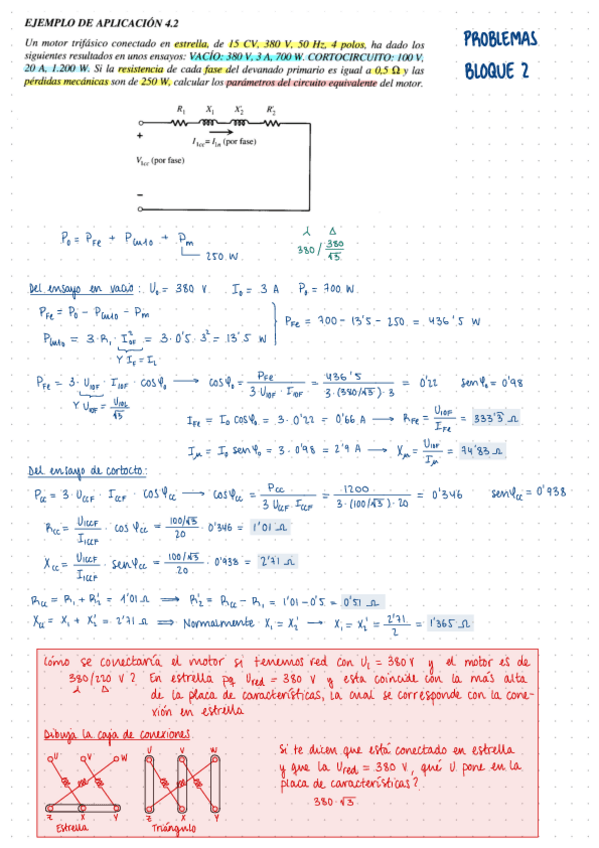 EJEMPLO DE APLICACIÓN 4.2
PROBLEMAS
BLOQUE 2
Un motor trifásico conectado en estrella, de 15 CV, 380 V, 50 Hz, 4 polos, ha dado los
siguientes resultados en unos ensayos: VACÍO: 380 V, 3 A, 700 W. CORTOCIRCUITO: 100 V,
20 A, 1.200 W. Si la resistencia de cada fase del devanado primario es igual a 0,5 Ω y las
pérdidas mecánicas son de 250 W, calcular los parámetros del circuito equivalente del motor.
R₁ X₁ X'₂ R'₂
+
I₁cc = I₁n (por fase)
V₁cc (por fase)
−
P₀ = P_Fe + P_cu10 + P_m
250 W
λ Δ
380 / 380/√3
Del ensayo en vacío: U₀ = 380 V. I₀ = 3 A P₀ = 700 W.
P_Fe = P₀ - P_cu10 - P_m
P_cu10 = 3·R₁ I²₀F = 3·0'5·3² = 13'5 W
Y I_F = I_L
P_Fe = 700 - 13'5 - 250 = 436'5 W
P_Fe = 3·U₁₀F · I₁₀F cosφ₀ → cosφ₀ = P_Fe / 3 U₁₀F · I₁₀F = 436'5 / 3·(380/√3)·3 = 0'22 senφ₀ = 0'98
Y U₁₀F = U₁₀L/√3
I_Fe = I₀ cosφ₀ = 3·0'22 = 0'66 A → R_Fe = U₁₀F / I_Fe = 333'3 Ω
I_μ = I₀ senφ₀ = 3·0'98 = 2'9 A → X_μ = U₁₀F / I_μ = 74'83 Ω
Del ensayo de cortocto:
P_cc = 3·U_CCF · I_CCF · cosφ_cc → cosφ_cc = P_cc / 3 U_CCF · I_CCF = 1200 / 3·(100/√3)·20 = 0'346 senφ_cc = 0'938
R_cc = U₁CCF / I₁CCF · cosφ_cc = 100/√3 / 20 · 0'346 = 1'01 Ω
X_cc = U₁CCF / I₁CCF · senφ_cc = 100/√3 / 20 · 0'938 = 2'71 Ω
R_cc = R₁ + R'₂ = 1'01 Ω ⟹ R'₂ = R_cc - R₁ = 1'01 - 0'5 = 0'51 Ω
X_cc = X₁ + X'₂ = 2'71 Ω ⟹ Normalmente X₁ = X'₂ → X₁ = X'₂ = 2'71 / 2 = 1'365 Ω
Cómo se conectaría el motor si tenemos red con U_L = 380 V y el motor es de
380/220 V? En estrella pq U_red = 380 V y esta coincide con la más alta
λ Δ
de la placa de características, la cual se corresponde con la cone-
xión en estrella
Dibuja la caja de conexiones
U V W
Z X Y
Estrella
U V W
Z X Y
Triángulo
Si te dicen que está conectado en estrella
y que la U_red = 380 V, qué U pone en la
placa de características?
380·√3